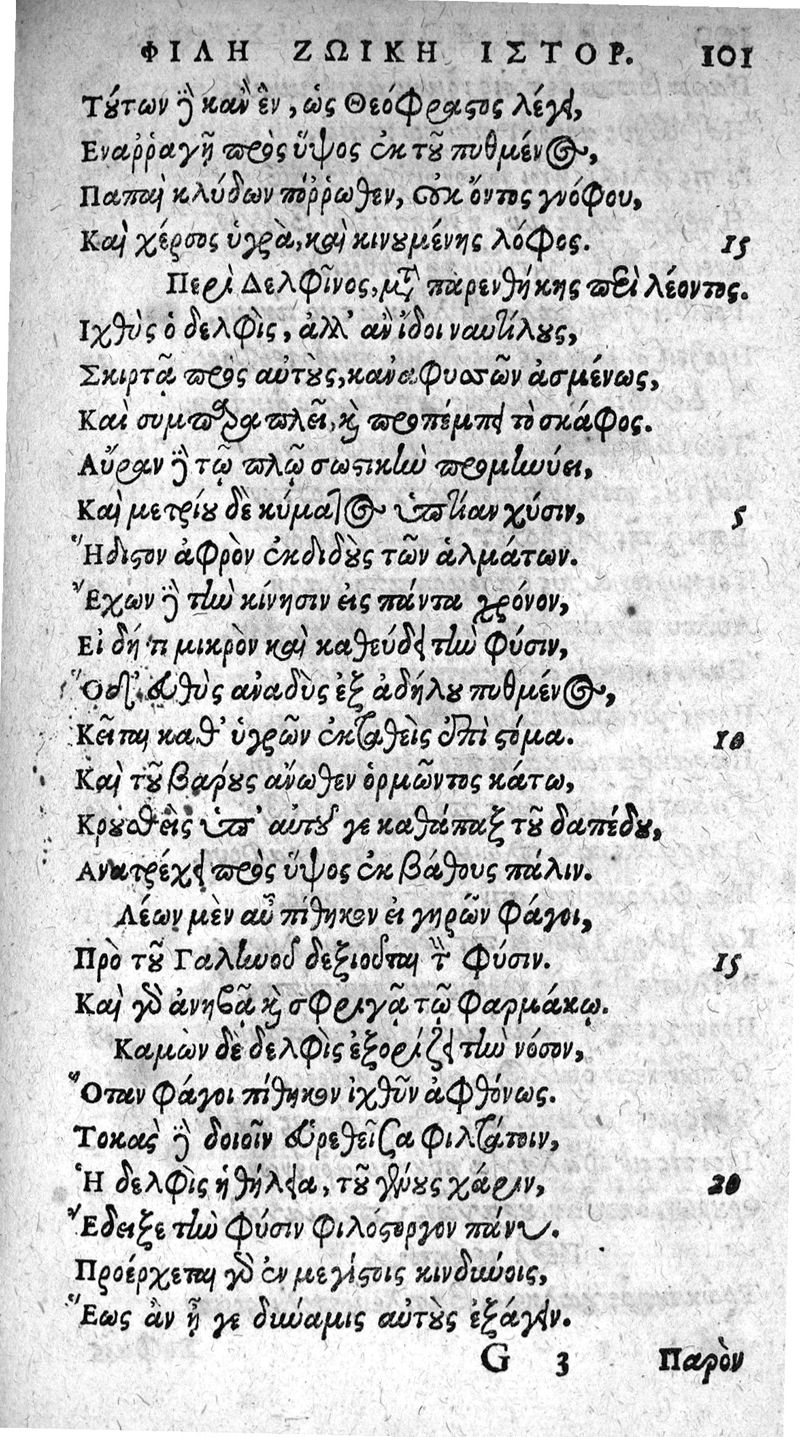 ΦΙΛΗ ΖΩΙΚΗ ΙΣΤΟΡ. 101
Τούτων δὲ κἂν ἓν, ὡς Θεόφραστος λέγει,
Εναῤῥαγῇ πρὸς ὕψος ἐκ τοῦ πυθμένος,
Παπαὶ κλύδων πόῤῥωθεν, οὐκ ὄντος γνόφου,
Καὶ χέρσος ὑγρὰ, καὶ κινουμένης λόφος. 15
Περὶ Δελφῖνος, μετὰ παρενθήκης περὶ λέοντος.
Ιχθὺς ὁ δελφὶς, ἀλλ' ἂν ἴδοι ναυτίλους,
Σκιρτᾷ πρὸς αὐτοὺς, κἀναφυσῶν ἀσμένως,
Καὶ συμπαραπλεῖ, καὶ προπέμπει τὸ σκάφος.
Αὔραν δὲ τῷ πλῷ σωστικὴν προμηνύει,
Καὶ μετρίου δὲ κύματος ὑπτίαν χύσιν, 5
Ἥδιστον ἀφρὸν ἐκδιδοὺς τῶν ἁλμάτων.
Ἔχων δὲ τὴν κίνησιν εἰς πάντα χρόνον,
Εἰ δή τι μικρὸν καὶ καθεύδει τὴν φύσιν,
Ὅδ' εὐθὺς ἀναδὺς ἐξ ἀδήλου πυθμένος,
Κεῖται καθ' ὑγρῶν ἐκταθεὶς ἐπὶ στόμα. 10
Καὶ τοῦ βάρους ἄνωθεν ὁρμῶντος κάτω,
Κρουσθεὶς ὑπ' αὐτοῦ γε καθάπαξ τοῦ δαπέδου,
Ανατρέχει πρὸς ὕψος ἐκ βάθους πάλιν.
Λέων μὲν αὖ πίθηκον εἰ γηρῶν φάγοι,
Πρὸ τοῦ Γαληνοῦ δεξιοῦται τὴν φύσιν. 15
Καὶ γὰρ ἀνηβᾷ καὶ σφριγᾷ τῷ φαρμάκῳ.
Καμὼν δὲ δελφὶς ἐξορίζει τὴν νόσον,
Ὅταν φάγοι πίθηκον ἰχθῦν ἀφθόνως.
Τοκὰς δὲ δοιοῖν εὑρεθεῖσα φιλτάτοιν,
Ἡ δελφὶς ἡ θήλεια, τοῦ γένους χάριν, 20
Ἔδειξε τὴν φύσιν φιλόστοργον πάνυ.
Προέρχεται γὰρ ἐν μεγίστοις κινδύνοις,
Ἕως ἂν ᾖ γε δύναμις αὐτοὺς ἐξάγειν.
G 3 Παρὸν